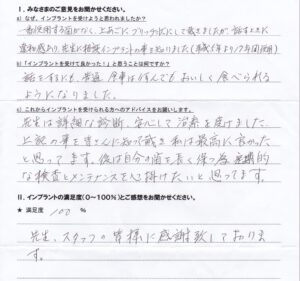 Ⅰ. みなさまのご意見をお聞かせください。
a) なぜ、インプラントを受けようと思われましたか？
一番使用する歯がなく、上あごにブリッヂ式にして戴きましたが、話す上に
違和感あり、先生に相談インプラントの事を知りました
b)「インプラントを受けて良かった！」と思うことは何ですか？
話をするにも、普通、食事は何んでもおいしく食べられる
ようになりました。
c) これからインプラントを受けられる方へのアドバイスをお願いします。
先生は詳細な診断、安心して治療を受けました。
上記の事を皆さんに知って戴き私は最高に良かった
と思ってます。後は自分の歯を長く保つ為、定期的
な検査とメンテナンスを心掛けたいと思ってます。
Ⅱ. インプラントの満足度（0～100%）とご感想をお聞かせください。
★ 満足度 100 %
先生、スタッフの皆様に感謝致しておりま
す。